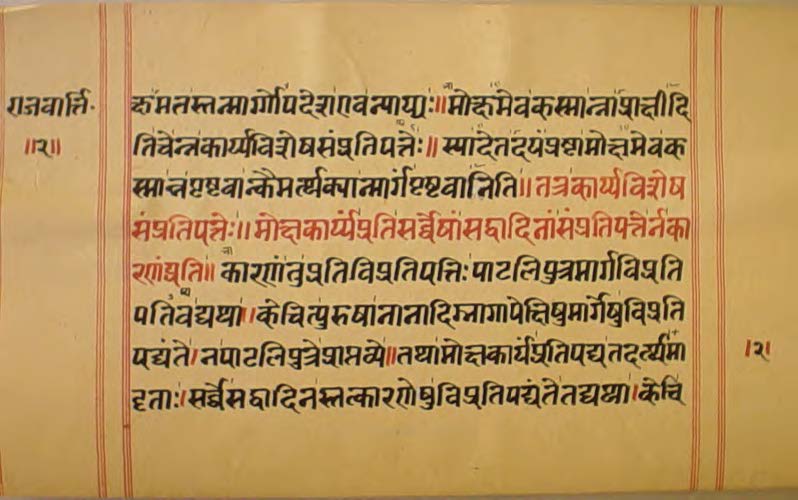 राजवार्त्ति॰
॥२॥
क्तमतस्तन्मार्गोपदेशएवन्याय्यः॥मोक्षमेवकस्मान्नाप्राक्षीदि
तिचेन्नकार्य्यविशेषसंप्रतिपत्तेः॥स्यादेतदयंप्रष्टामोक्षमेवक
स्मान्नपृष्टवान्कैमर्त्थक्यान्मार्गंपृष्टवानिति॥तन्नकार्य्यविशेष
संप्रतिपत्तेः॥मोक्षकार्य्यंप्रतिसर्व्वेषांसद्वादिनांसंप्रतिपत्तेर्नका
रणंप्रति॥कारणांतुप्रतिविप्रतिपत्तिःपाटलिपुत्रमार्गविप्रति
पतिवद्यथा।केचित्पुरुषानानादिग्भागापेक्षिषुमार्गेषुविप्रति
पद्यंते।नपाटलिपुत्रेप्राप्तव्ये॥तथामोक्षकार्यंप्रतिपद्यतदर्त्थमा
दृताः।सर्व्वेसद्वादिनस्तत्कारणेषुविप्रतिपद्यंतेतद्यथा।केचि
।२।